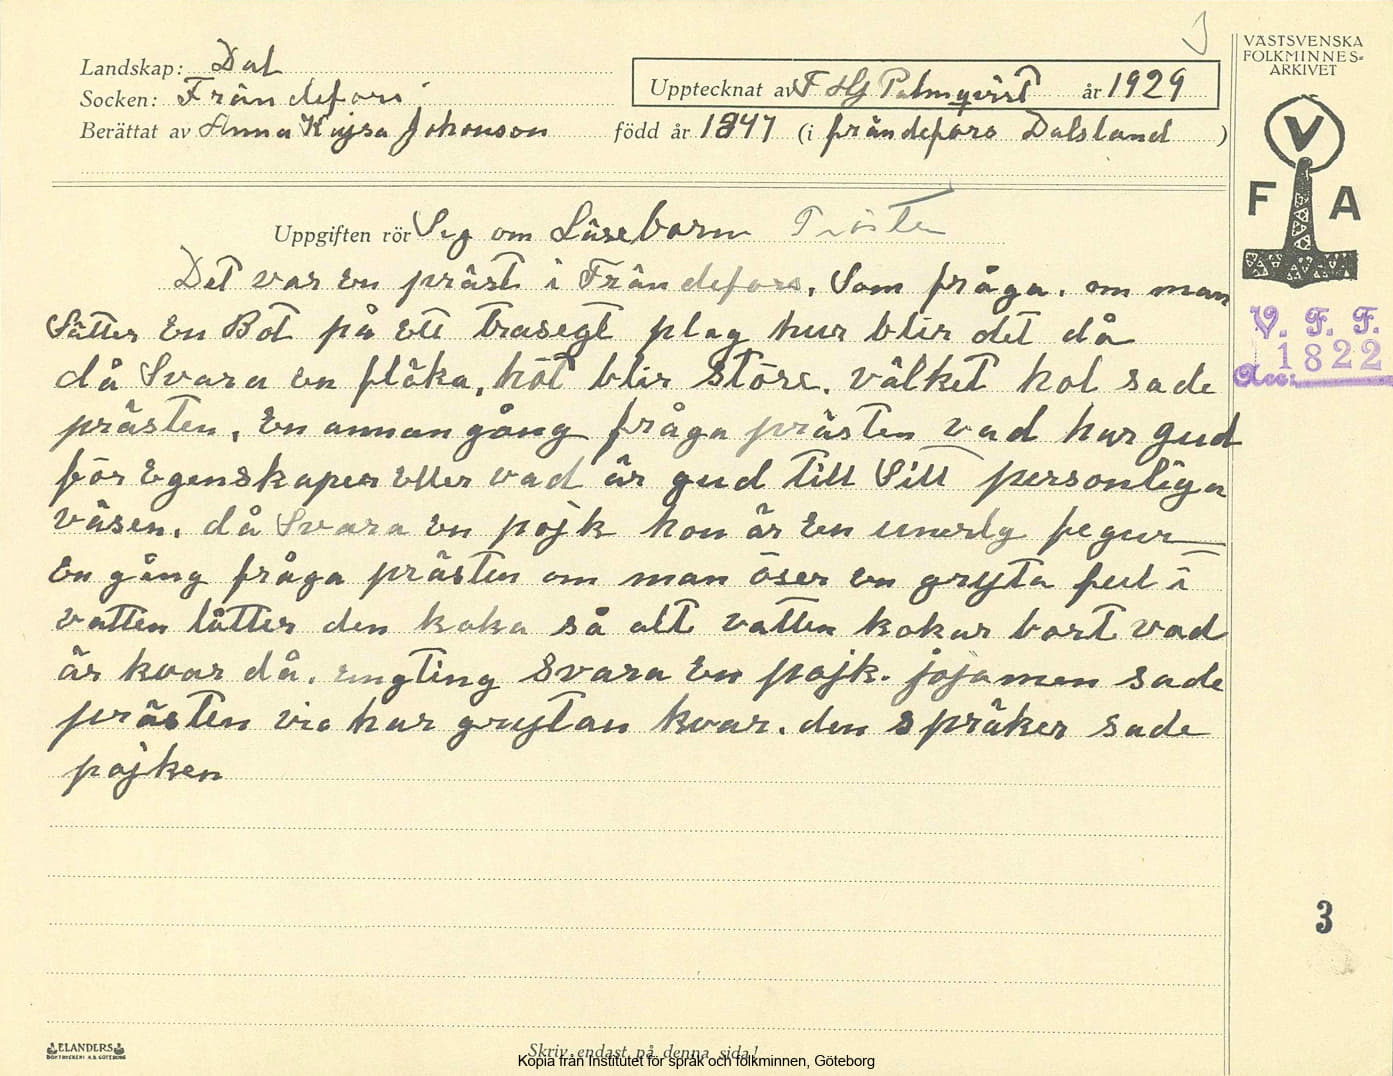 3
VÄSTSVENSKA
FOLKMINNES-
ARKIVET
Landskap: Dal
Socken: Frändefors
Upptecknat av F Hj Palmqvist år 1929
Berättat av Anna Kajsa Johonson född år 1847 (i frändefors Dalsland )
V
F A
Uppgiften rör Seg om Läsebarn Prösten
Det var en präst i Frändefors, Som fråga. om man
Sätter En Bot på ett trasegt plag hur blir det då
då Svara en fläka, hôt blir Störe. välket hol sade
prästen, En annan gång fråga prästen vad har gud
för Egenskaper eller vad är gud till Sitt personliga
väsen, då Svara en pojk hon är En unerlg fegur
En gång fråga prästen om man öser en gryta ful i
vatten låtter den koka så att vatten kokar bort vad
är kvar då. engting Svara En pojk. jojamen sade
prästen vie har grytan kvar. den språker sade
pojken
V. F. F.
Acc: 1822
3
ELANDERS
BOKTRYCKERI A.B. GÖTEBORG
Skriv endast på denna sida!
Kopia från Institutet för språk och folkminnen, Göteborg